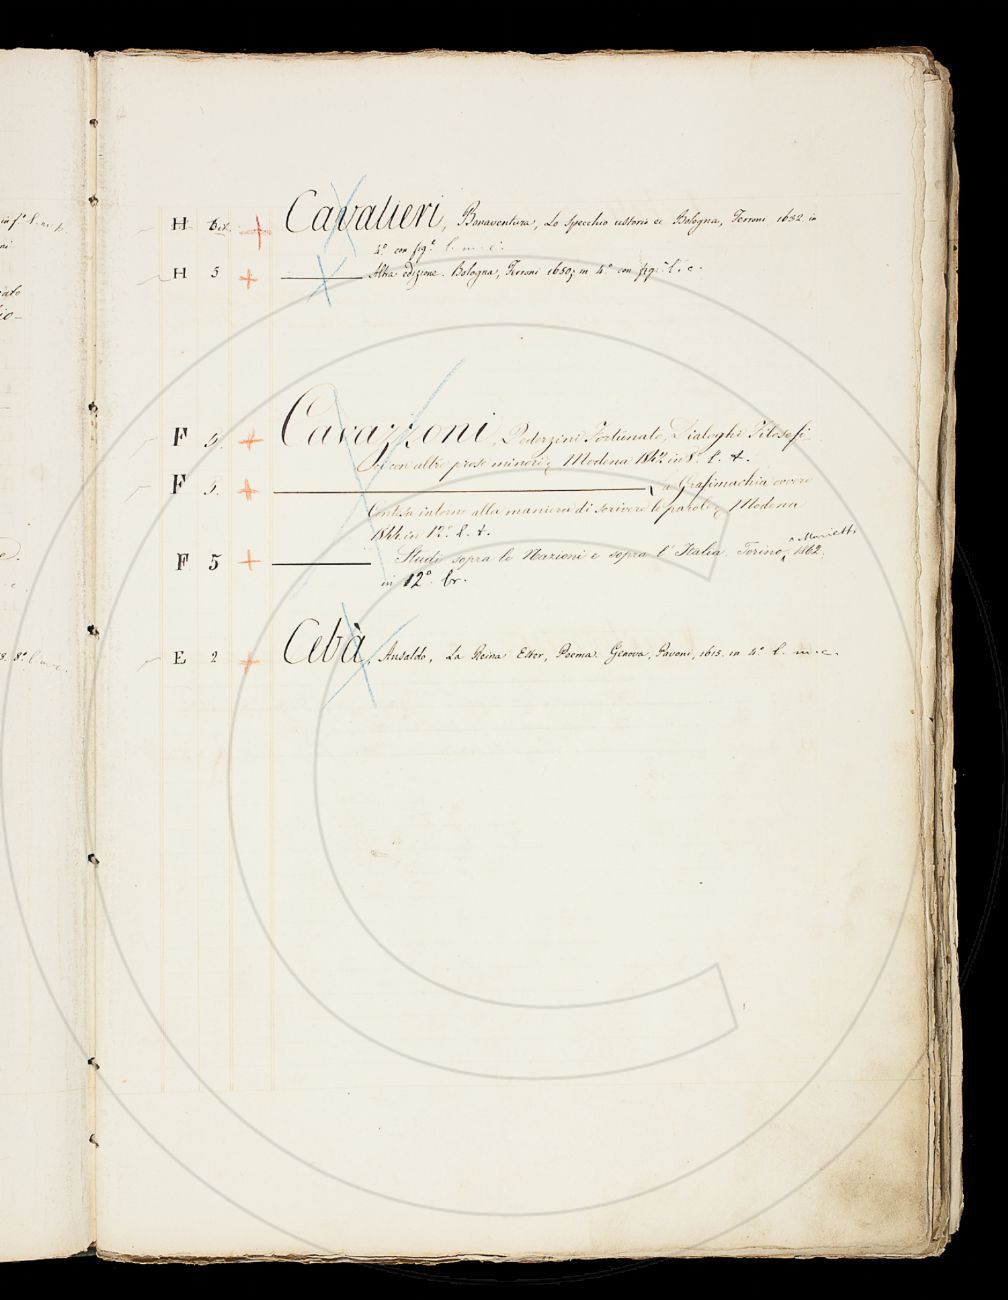 H 6.ix. + Cavalieri, Bonaventura, Lo specchio ustorio ec Bologna, Ferroni 1632. in
4º con fig.e l. m. c.
H 5 + Altra edizione. Bologna, Ferroni 1650, in 4º con fig.e l. c.
F 4. + Cavazzoni, Pederzini Fortunato, Dialoghi Filosofi
ci con altre prose minori, Modena 1842 in 8º l. t.
F 4. + La Grafimachia ovvero
Contesa intorno alla maniera di scrivere le parole, Modena
1844 in 12º l. t.
F 5 + Studi sopra le Nazioni e sopra l'Italia. Torino, Marietti 1862.
in 12º. br.
E 2 + Cebà, Ansaldo, La Reina Ester, Poema. Genova, Pavoni, 1615. in 4º l. m. c.
C